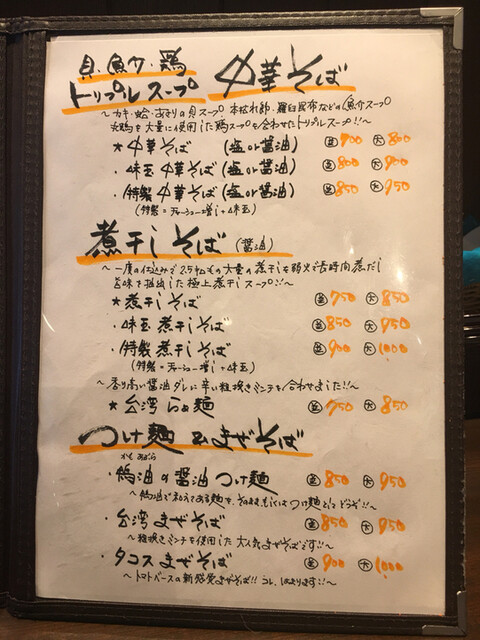 貝・魚介・鶏
トリプルスープ 中華そば
～カキ・蛤・あさりの貝スープ、本枯れ節、羅臼昆布などの魚介スープ
丸鶏を大量に使用した鶏スープを合わせたトリプルスープ!!～
★中華そば (塩or醤油) 並700 大800
・味玉 中華そば (塩or醤油) 並800 大900
・特製 中華そば (塩or醤油) 並850 大950
(特製=チャーシュー増し+味玉)
煮干しそば (醤油)
～一度の仕込みで25キロもの大量の煮干しを弱火で長時間煮だし
旨味を抽出した極上煮干しスープ!!～
★煮干しそば 並750 大850
・味玉煮干しそば 並850 大950
・特製煮干しそば 並900 大1000
(特製=チャーシュー増し+味玉)
～香り高い醤油ダレに辛い粗挽きミンチを合わせました!!～
★台湾らぁ麺 並750 大850
つけ麺 &まぜそば
かも あぶら
・鴨油の醤油つけ麺 並850 大950
～鴨油で和えてある麺を、そのまま、もしくはつけ麺としてどうぞ!!～
・台湾まぜそば 並850 大950
～粗挽きミンチを使用した大人気まぜそばです!!～
・タコスまぜそば 並900 大1000
～トマトベースの新感覚まぜそば!! コレ、はまります!!～